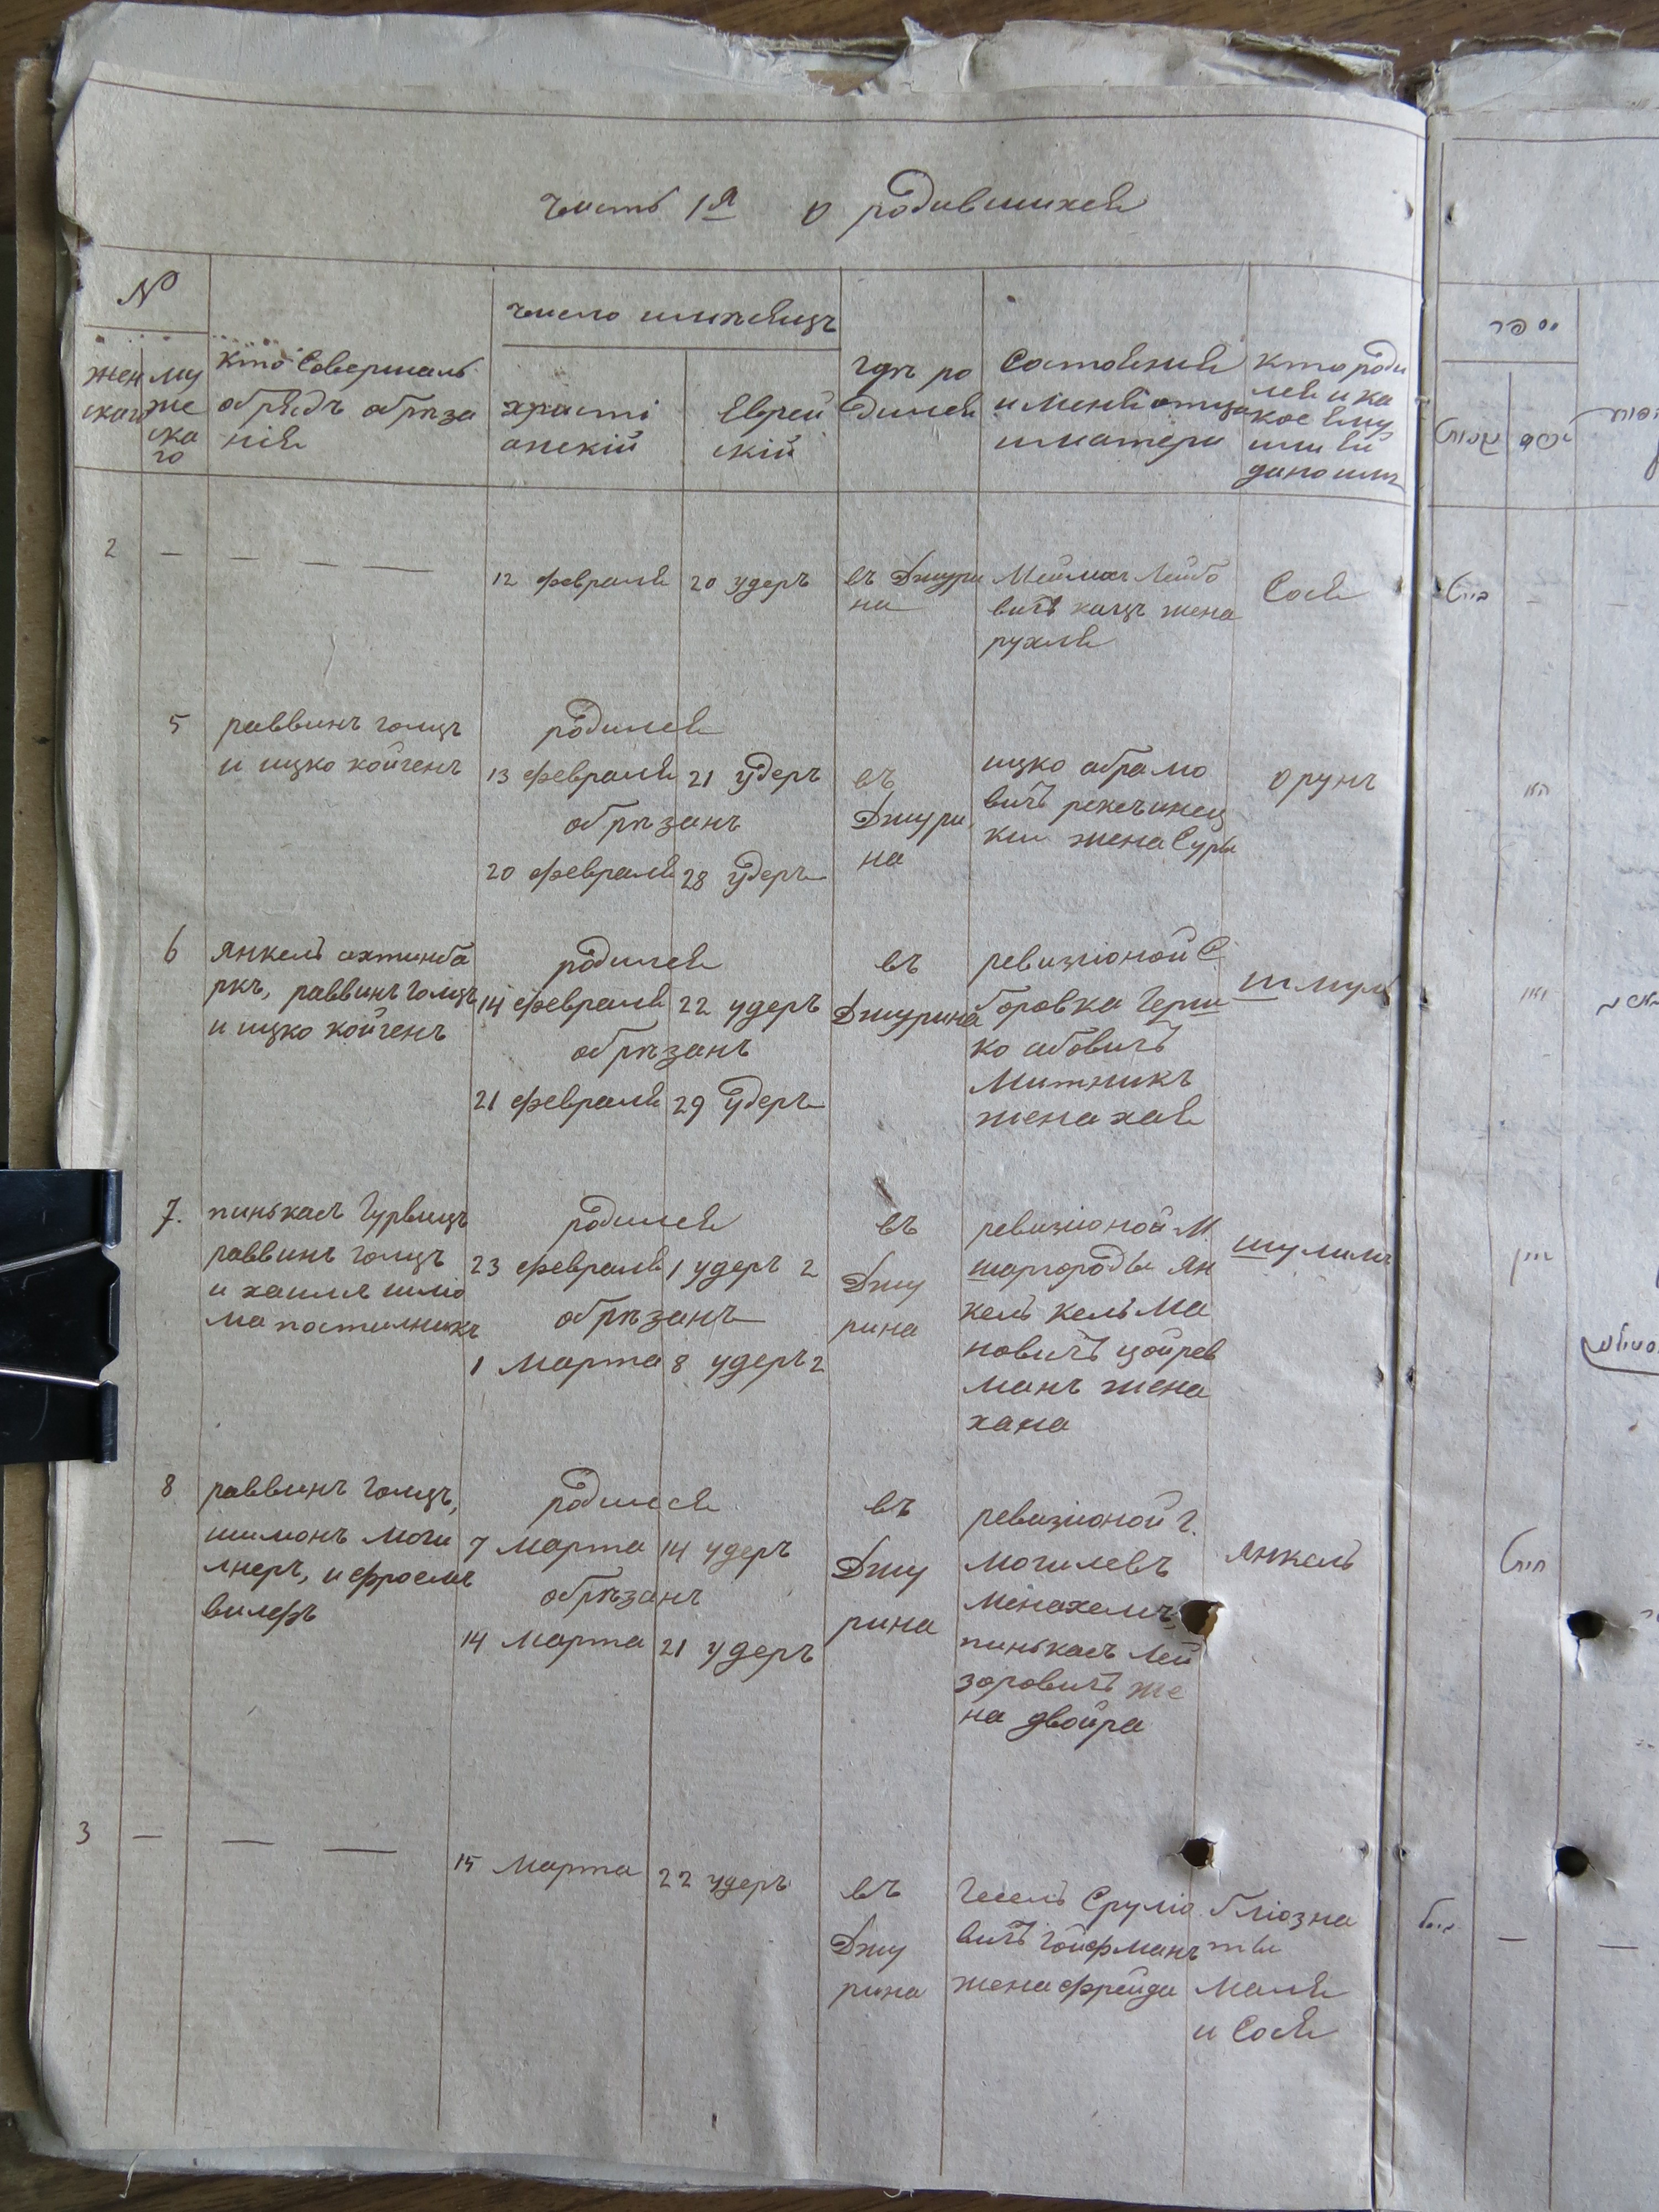 часть 1я о родившихся
№
число и мѣсяцъ
женскаго
мужескаго
кто Совершалъ
обрядъ обрѣза
нія
христі
анскій
Еврей
скій
гдѣ ро
дился
Состояніе
и мена отца
и матери
кто роди
лся и ка
кое ему
или ей
дано имя
2 — — — —
12 февраля 20 удеръ
въ Джури
на
Мейлихъ Лейбо
вичъ кацъ жена
рухля
Сося
5
раввинъ голцъ
и ицко койгенъ
родился
13 февраля 21 удеръ
обрѣзанъ
20 февраля 28 удеръ
въ
Джури
на
ицко абрамо
вичъ
жена Сура
орунъ
6
янкель ахтинба
ркъ, раввинъ голцъ
и ицко койгенъ
родился
14 февраля 22 удеръ
обрѣзанъ
21 февраля 29 удеръ
въ
Джурина
ревизіоной С.
боровка Герш
ко абовичъ
Митникъ
жена хая
шмуль
7.
пинькасъ Гурвицъ
раввинъ голцъ
и хаимъ шліо
ма постилникъ
родился
23 февраля 1 удеръ 2
обрѣзанъ
1 марта 8 удеръ 2
въ
Джу
рина
ревизіоной М.
шаргорода ян
кель кельма
новичъ цойреф
манъ жена
хана
шулимъ
8
раввинъ голцъ,
шимонъ моги
лнеръ, и фроемъ
вилефъ
родился
7 марта 14 удеръ
обрѣзанъ
14 марта 21 удеръ
въ
Джу
рина
ревизіоной г.
могилевъ
менахемъ
пинькасъ лей
зоровичъ же
на двойра
янкель
3 — — —
15 марта 22 удеръ
въ
Джу
рина
Гесель Сруліо
вичъ Гойфманъ
жена фрейда
бліозна
ты
маля
и Сося